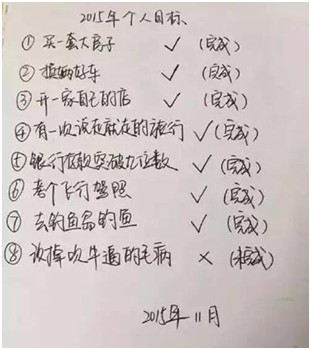 2015年个人目标
① 买一套大房子 ✓ (完成)
② 换辆好车 ✓ (完成)
③ 开一家自己的店 ✓ (完成)
④ 有一次说走就走的旅行 ✓ (完成)
⑤ 银行存款突破九位数 ✓ (完成)
⑥ 考个飞行驾照 ✓ (完成)
⑦ 去钓鱼岛钓鱼 ✓ (完成)
⑧ 改掉吹牛逼的毛病 × (未完成)
2015年11月